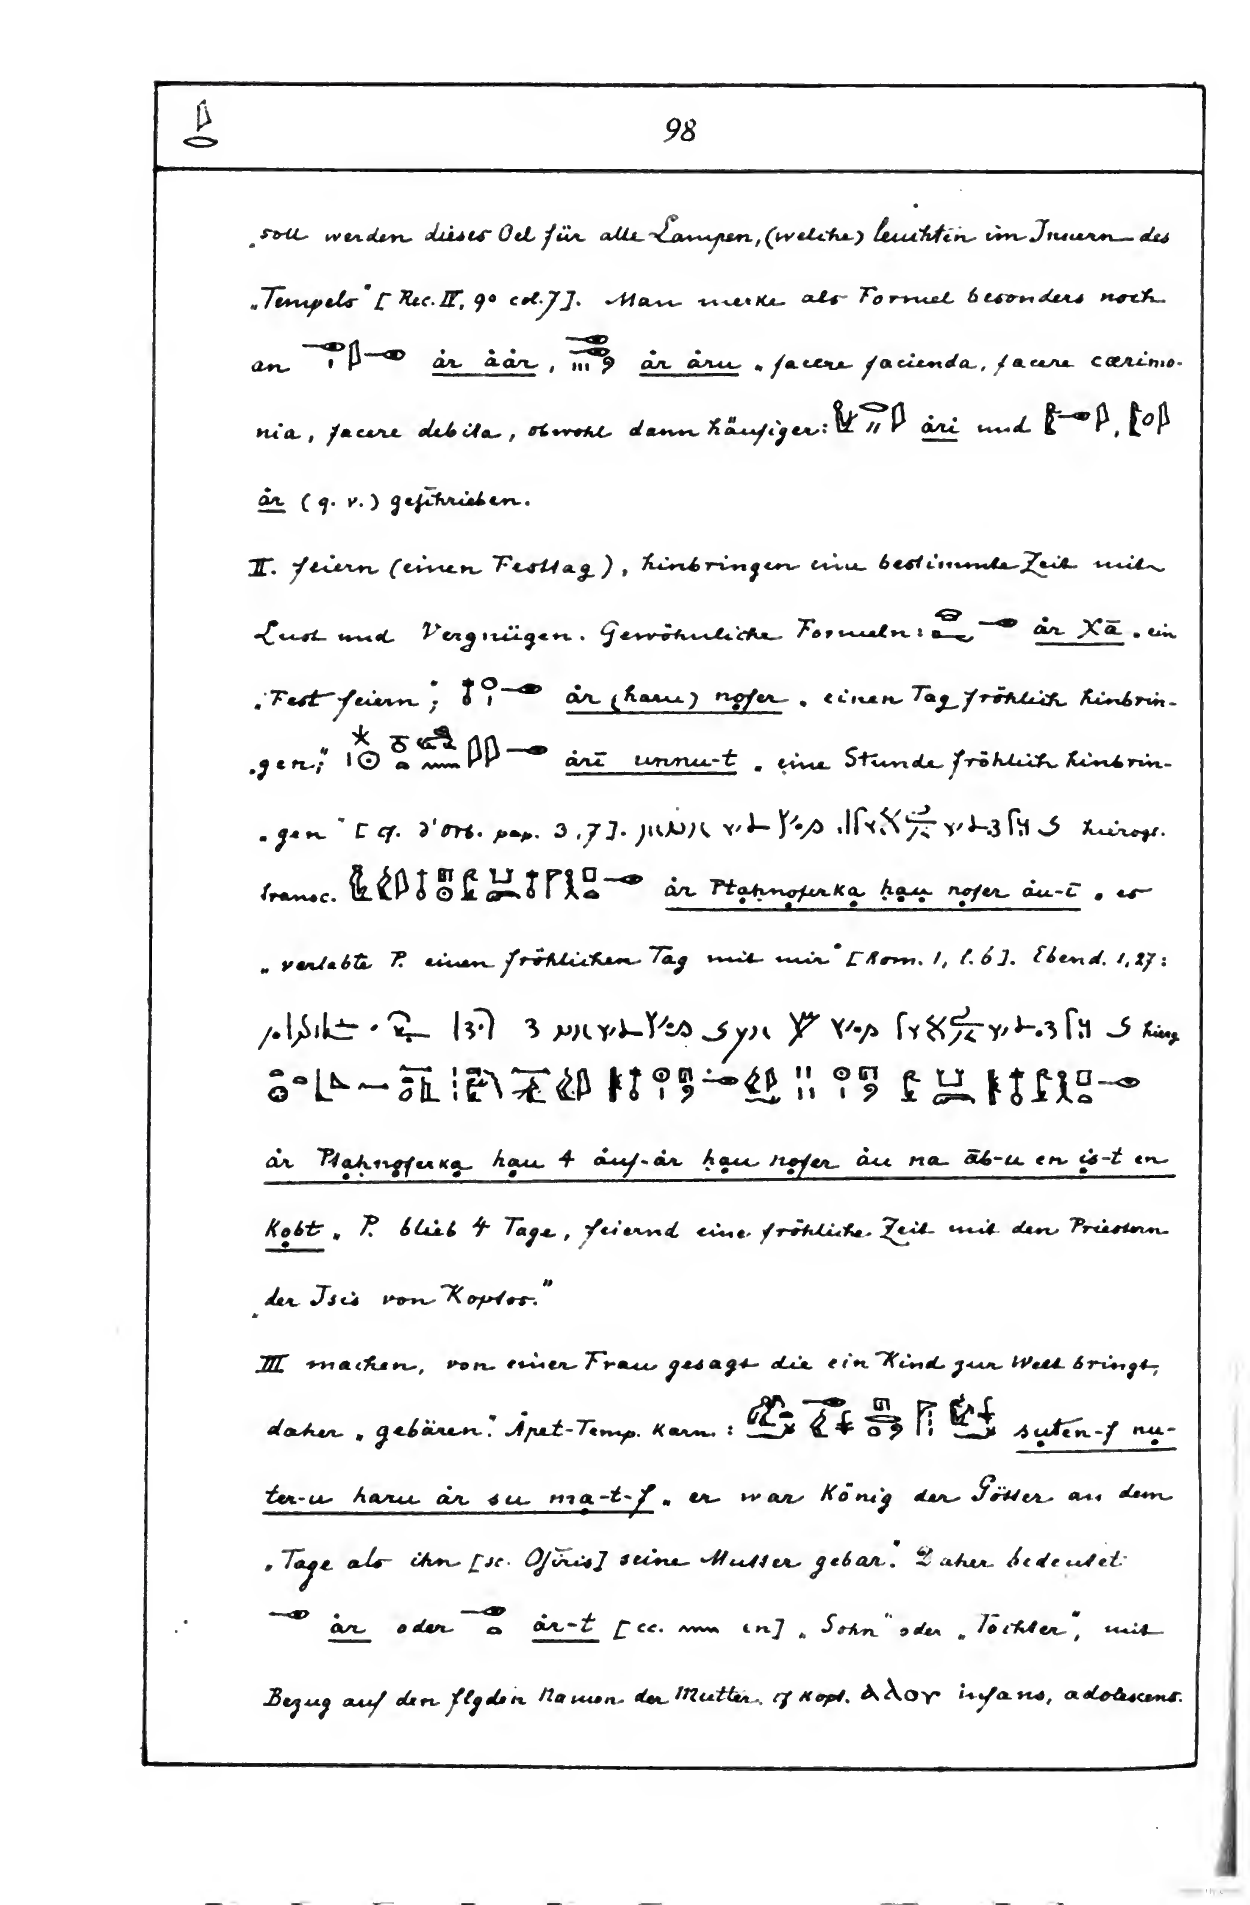 98
„soll werden dieses Oel für alle Lampen, (welche) leuchten im Innern des
„Tempels“ [Rec. IV, 9° col. 7]. Man merke als Formel besonders noch
an år åår, år åru „facere facienda, facere cærimo-
nia, facere debita, obwohl dann häufiger: åri und
år (q. v.) geschrieben.
II. feiern (einen Festtag), hinbringen eine bestimmte Zeit mit
Lust und Vergnügen. Gewöhnliche Formeln: år Xā „ein
„Fest feiern“; år (haru) nofer „einen Tag fröhlich hinbrin-
„gen“; årī unnu-t „eine Stunde fröhlich hinbrin-
„gen“ [cf. d'Orb. pap. 3,7]. hierogl.
transc. år Ptaḥnoferka ḥau nofer åu-ī „es
„verlebte P. einen fröhlichen Tag mit mir“ [Rom. 1, l. 6]. Ebend. 1,27:
hierg
år Ptaḥnoferka hau 4 åuf-år ḥau nofer åu na āb-u en is-t en
Kobt „P. blieb 4 Tage, feiernd eine fröhliche Zeit mit den Priestern
„der Isis von Koptos.“
III machen, von einer Frau gesagt die ein Kind zur Welt bringt,
daher „gebären“. Åpet-Temp. Karn.: suten-f nu-
ter-u haru år su ma-t-f „er war König der Götter an dem
„Tage als ihn [sc. Osiris] seine Mutter gebar“. Daher bedeutet
år oder år-t [cc. en] „Sohn“ oder „Tochter“, mit
Bezug auf den flgden Namen der Mutter. cf Kopt. ⲁⲗⲟⲩ infans, adolescens.